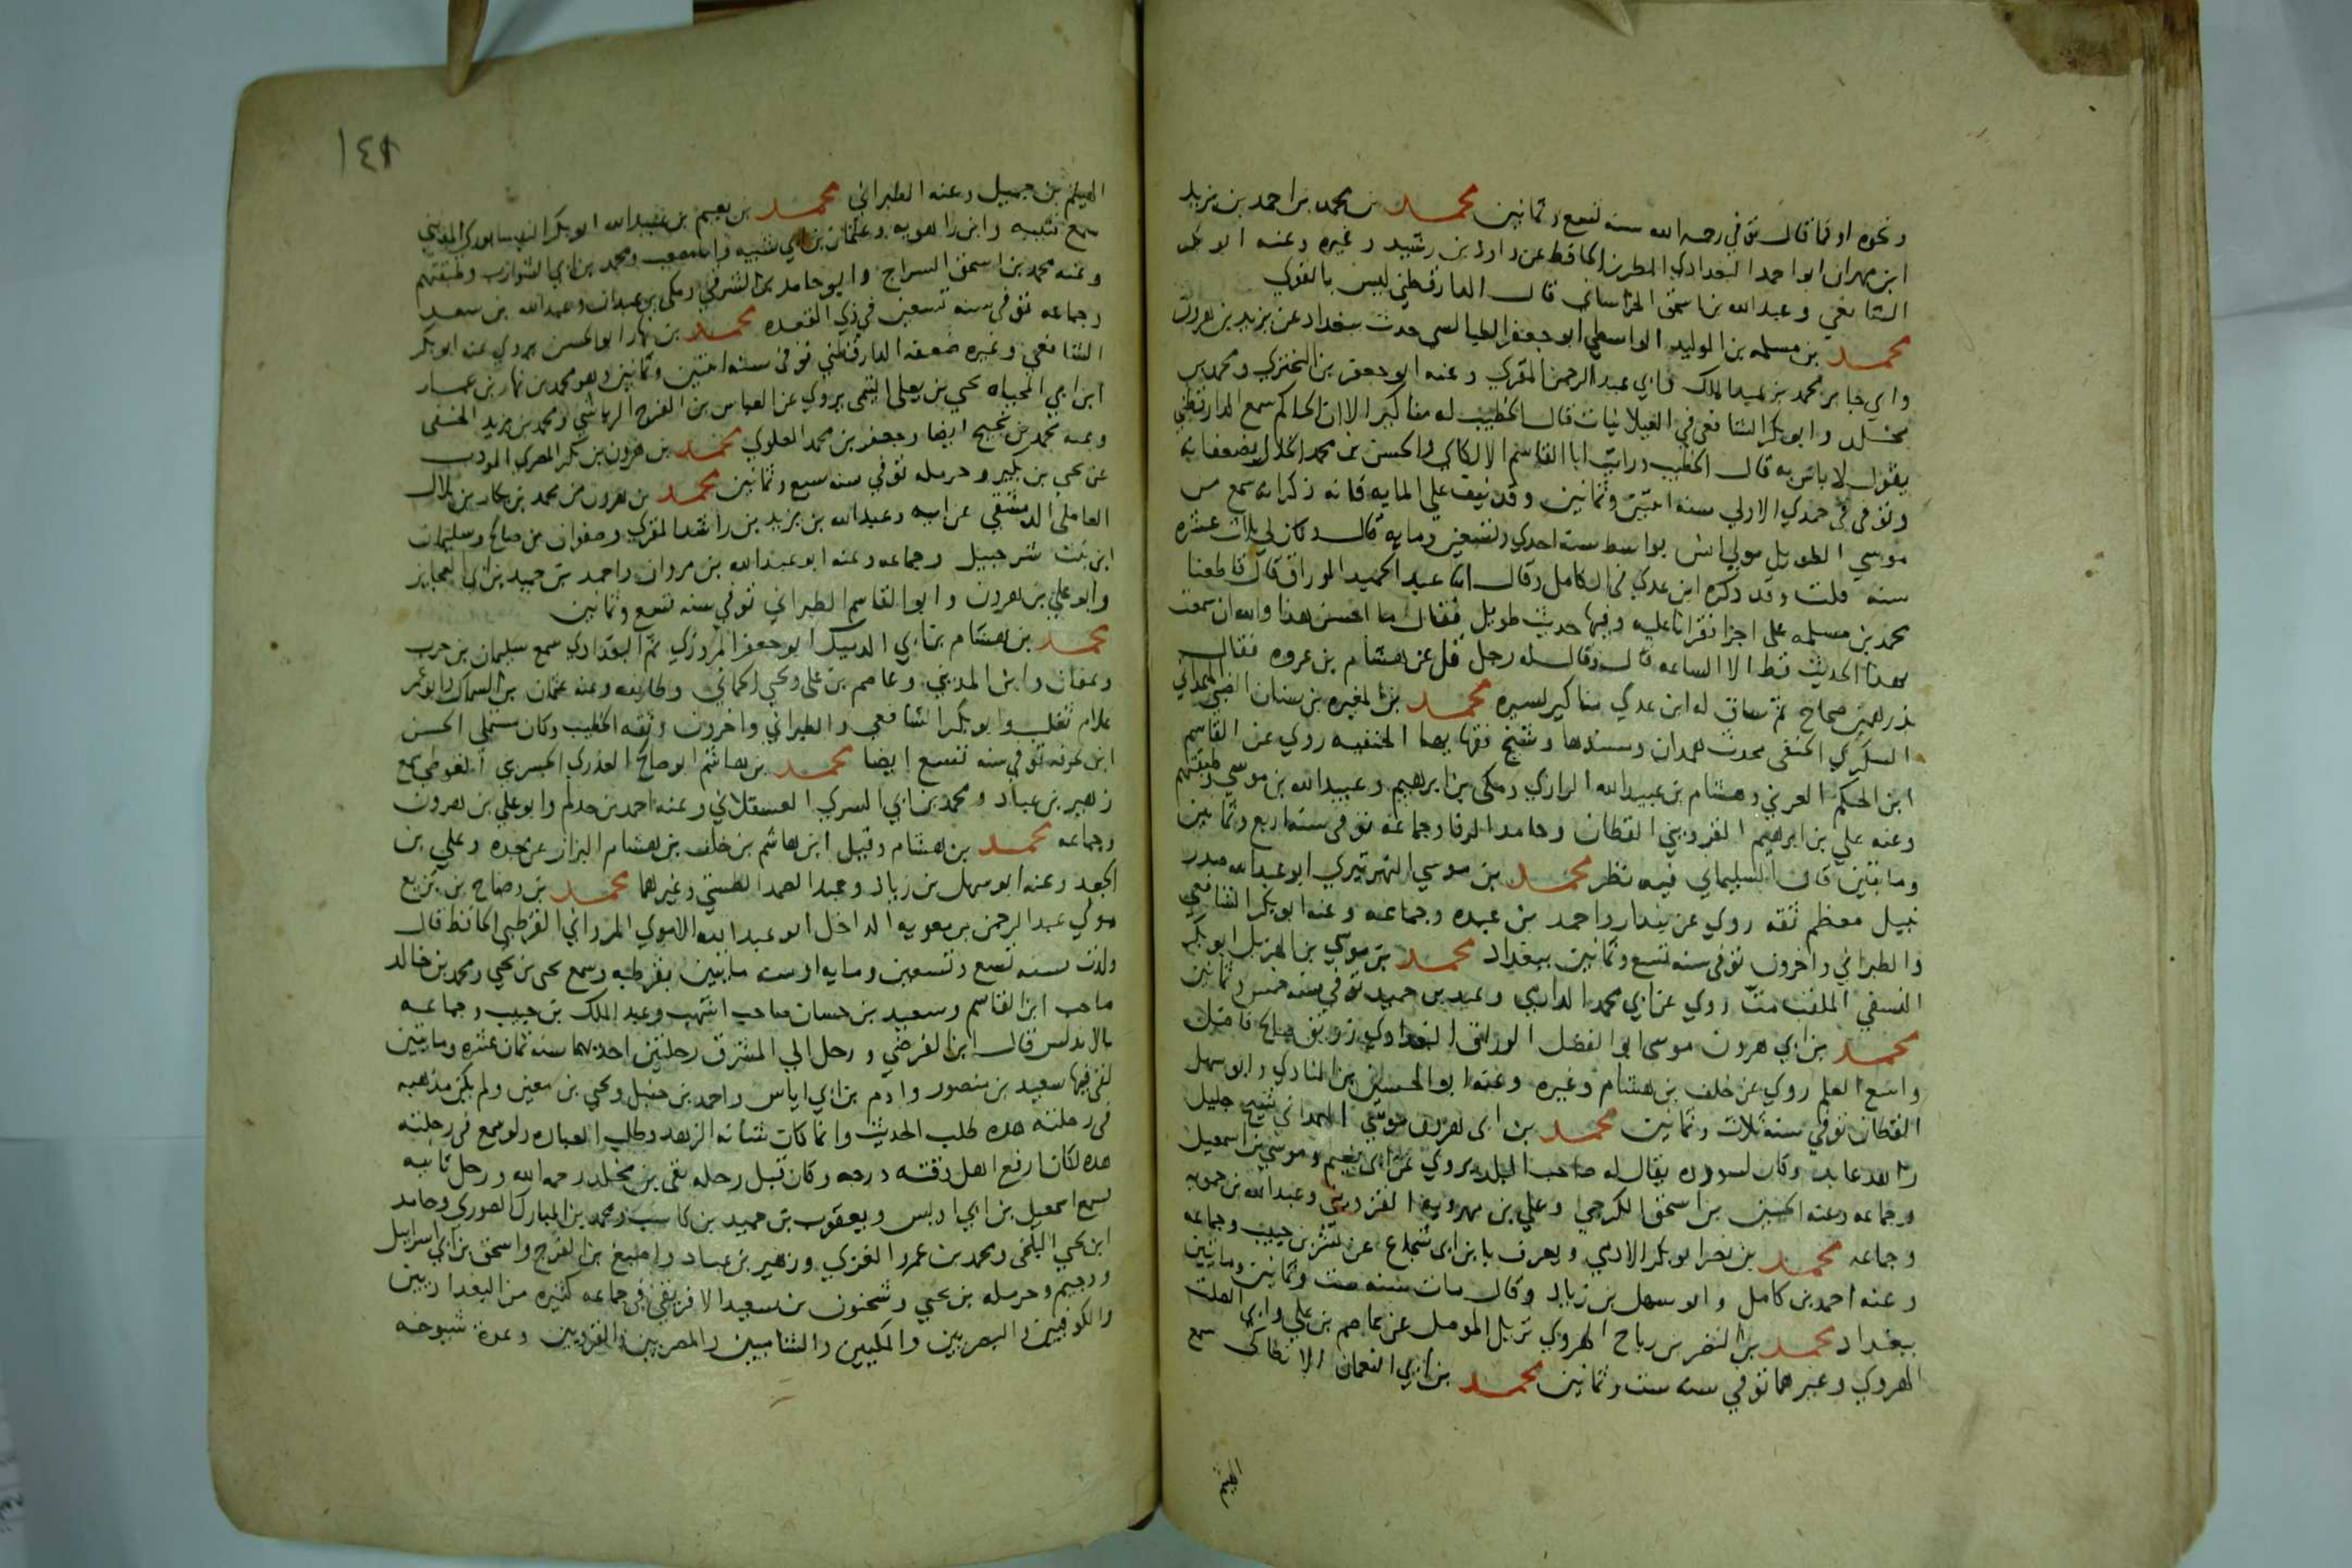 ونحوه او فما قال توفي رحمه الله سنه تسع وثمانين محمد بن محمد بن احمد بن يزيد
ابن مهران ابو احمد البغدادي المطرز الحافظ عن داود بن رشيد وغيره وعنه ابو بكر
الشافعي وعبد الله بن اسحق الخراساني قال الدارقطني ليس بالقوي
محمد بن مسلمه بن الوليد الواسطي ابو جعفر الطيالسي حدث ببغداد عن يزيد بن هرون
وابي جابر محمد بن عبد الملك وابي عبد الرحمن المقري وعنه ابو جعفر بن البختري ومحمد بن
مخلد وابو بكر الشافعي في الغيلانيات قال الخطيب له مناكير الا ان الحاكم سمع الدارقطني
يقول لا باس به قال الخطيب ورايت ابا القاسم الالكاي والحسن بن محمد الخلال يضعفانه
وتوفي في جمدي الاولي سنه اثنتين وثمانين وقد نيف علي المايه فانه ذكر انه سمع من
موسي الطويل مولي انس بواسط سنه احدي وتسعين ومايه قال وكان لي ثلاث عشره
سنه قلت وقد ذكره ابن عدي في الكامل وقال انا عبد الحميد الوراق قال قاطعنا
محمد بن مسلمه علي اجزا نقراناعليه وفيها حديث طويل فقال ما احسن هذا والله ان سمعت
بهذا الحديث قط الا الساعه قال وقال له رجل قل عن هشام بن عروه فقال
بدرهمين صحاح ثم ساق له ابن عدي مناكير يسيره محمد بن المغيره بن سنان الضبي الهمداني
السكري الحنفي محدث همدان ومسندها وشيخ فقهايها الحنفيه روي عن القاسم
ابن الحكم العرني وهشام بن عبيد الله الرازي ومكي بن ابرهيم وعبيد الله بن موسي وطبقتهم
وعنه علي بن ابرهيم القزويني القطان وحامد الرفا وجماعه توفي سنه اربع وثمانين
ومايتين قال السليماني فيه نظر محمد بن موسي النهرتيري ابو عبد الله صدر
نبيل معظم ثقه روي عن بندار واحمد بن عبده وجماعه وعنه ابو بكر الشافعي
والطبراني واخرون توفي سنه تسع وثمانين ببغداد محمد بن موسي بن الهزيل ابو بكر
النسفي الملقب مت روي عن ابي محمد الدارمي وعبد بن حميد توفي سنه خمس وثمانين
محمد بن ابي هرون موسي ابو الفضل الوراق البغدادي زريق صالح فاضل
واسع العلم روي عن خلف بن هشام وغيره وعنه ابو الحسين بن المنادي وابو سهل
القطان توفي سنه ثلاث وثمانين محمد بن ابي هرون موسي الهمداني شيخ جليل
زاهد عابد وكان لسودده يقال له صاحب البلد يروي عن ابي نعيم وموسي بن اسمعيل
وجماعه وعنه الحسين بن اسحق الكرجي وعلي بن مهرويه القزويني وعبد الله بن حمويه
وجماعه محمد بن نصر ابو بكر الادمي ويعرف بابن ابي شجاع عن بشر بن حبيب وجماعه
وعنه احمد بن كامل وابو سهل بن زياد وقال مات سنه ست وثمانين ومايتين
ببغداد محمد بن النضر بن رباح الهروي نزيل الموصل عن عاصم بن علي وابي الصلت
الهروي وغيرهما توفي سنه ست وثمانين محمد بن ابي النعمان الانطاكي سمع
الهيثم
١٤٨
الهيثم بن جميل وعنه الطبراني محمد بن نعيم بن عبد الله ابو بكر النيسابوري المديني
سمع قتيبه وابن راهويه وعثمان بن ابي شيبه وابا مصعب ومحمد بن ابي الشوارب وطبقتهم
وعنه محمد بن اسحق السراج وابو حامد بن الشرقي ومكي بن عبدان وعبد الله بن سعد
وجماعه توفي سنه تسعين في ذي القعده محمد بن نهار ابو الحسن يروي عنه ابو بكر
الشافعي وغيره ضعفه الدارقطني توفي سنه اثنتين وثمانين وهو محمد بن نهار بن عمار
ابن ابي المحياه يحيي بن يعلي التيمي يروي عن العباس بن الفرج الرياشي ومحمد بن يزيد الحنفي
وعنه محمد بن نجيح ايضا وجعفر بن محمد العلوي محمد بن هرون بن بكر المصري المودب
عن يحيي بن بكير وحرمله توفي سنه سبع وثمانين محمد بن هرون بن محمد بن بكار بن بلال
العاملي الدمشقي عن ابيه وعبد الله بن يزيد بن راشد المقري وصفوان بن صالح وسليمان
ابن بنت شرحبيل وجماعه وعنه ابو عبد الله بن مروان واحمد بن حميد بن ابي العجايز
وابو علي بن هرون وابو القاسم الطبراني توفي سنه تسع وثمانين
محمد بن هشام بن ابي الدميك ابو جعفر المروزي ثم البغدادي سمع سليمان بن حرب
وعفان وابن المديني وعاصم بن علي ويحيي الحماني وطايفه وعنه عثمان بن السماك وابو عمر
غلام ثعلب وابو بكر الشافعي والطبراني واخرون وثقه الخطيب وكان مستملي الحسن
ابن عرفه توفي سنه تسع ايضا محمد بن هاشم ابو صالح العذري الجسري الغوطي سمع
زهير بن عباد ومحمد بن ابي السري العسقلاني وعنه احمد بن حذلم وابو علي بن هرون
وجماعه محمد بن هشام وقيل ابن هاشم بن خلف بن هشام البزاز عن جده وعلي بن
الجعد وعنه ابو سهل بن زياد وعبد الصمد الطستي وغيرهما محمد بن وضاح بن بزيع
مولي عبد الرحمن بن معويه الداخل ابو عبد الله الاموي المرواني القرطبي الحافظ قال
ولدت سنه تسع وتسعين ومايه او سنه مايتين بقرطبه وسمع يحيي بن يحيي ومحمد بن خالد
صاحب ابن القاسم وسعيد بن حسان صاحب اشهب وعبد الملك بن حبيب وجماعه
بالاندلس قال ابن الفرضي ورحل الي المشرق رحلتين احديهما سنه ثمان عشره ومايتين
لقي فيها سعيد بن منصور وادم بن ابي اياس واحمد بن حنبل ويحيي بن معين ولم يكن مذهبه
في رحلته هذه طلب الحديث وانما كان شانه الزهد وطلب العباد ولو سمع في رحلته
هذه لكان ارفع اهل وقته درجه وكان قبل رحله بقي بن مخلد رحمه الله ورحل ثانيه
سمع اسمعيل بن ابي اويس ويعقوب بن حميد بن كاسب ومحمد بن المبارك الصوري وحامد
ابن يحيي البلخي ومحمد بن عمرو الغزي وزهير بن عباد واصبغ بن الفرج واسحق بن ابي اسرايل
ودحيم وحرمله بن يحيي وسحنون بن سعيد الافريقي في جماعه كثيره من البغداديين
والكوفيين والبصريين والمكيين والشاميين والمصريين والقرويين وعدة شيوخه